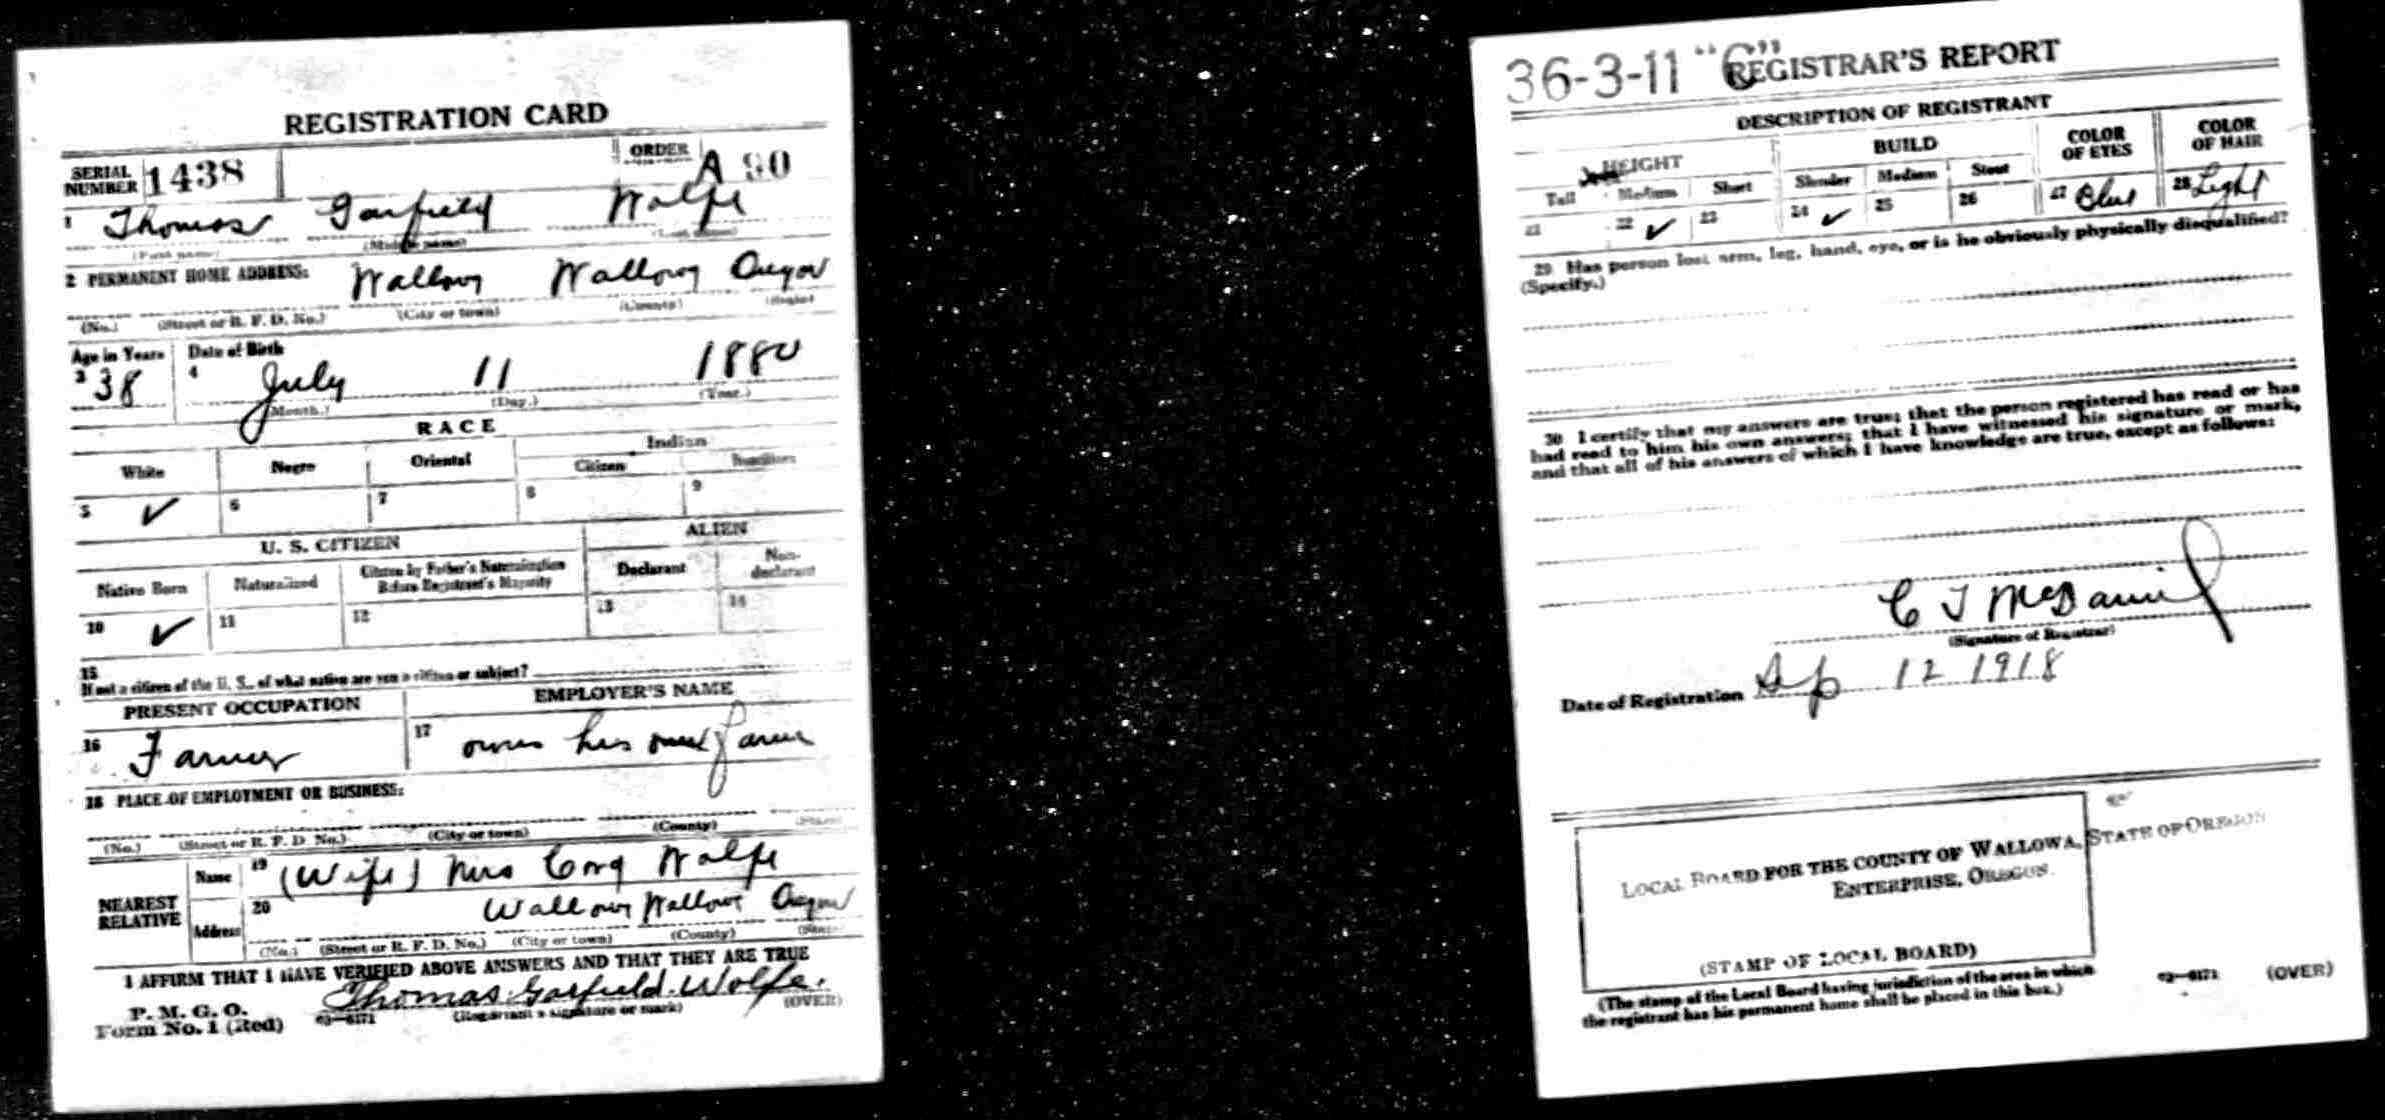 REGISTRATION CARD
SERIAL NUMBER 1438 ORDER A 90
1 Thomas Garfield Wolfe
(First name) (Middle name) (Last name)
2 PERMANENT HOME ADDRESS: Wallowa Wallowa Oregon
(No.) (Street or R. F. D. No.) (City or town) (County) (State)
Age in Years Date of Birth
3 38 4 July 11 1880
(Month.) (Day.) (Year.)
RACE
White Negro Oriental Indian
Citizen
5 ✓ 6 7 8 9
U. S. CITIZEN ALIEN
Native Born Naturalized Citizen by Father's Naturalization Before Registrant's Majority Declarant Non-declarant
10 ✓ 11 12 13 14
15
If not a citizen of the U. S., of what nation are you a citizen or subject?
PRESENT OCCUPATION EMPLOYER'S NAME
16 Farmer 17 owns his own farm
18 PLACE OF EMPLOYMENT OR BUSINESS:
(No.) (Street or R. F. D. No.) (City or town) (County) (State)
NEAREST RELATIVE Name 19 (Wife) Mrs Cora Wolfe
Address 20 Wallowa Wallowa Oregon
(No.) (Street or R. F. D. No.) (City or town) (County) (State)
I AFFIRM THAT I HAVE VERIFIED ABOVE ANSWERS AND THAT THEY ARE TRUE
P. M. G. O.
Form No. 1 (Red) 03—6171 Thomas Garfield Wolfe.
(Registrant's signature or mark) (OVER)
36-3-11 "C" REGISTRAR'S REPORT
DESCRIPTION OF REGISTRANT
HEIGHT BUILD COLOR OF EYES COLOR OF HAIR
Tall Medium Short Slender Medium Stout
21 22 ✓ 23 24 ✓ 25 26 27 Blue 28 Light
29 Has person lost arm, leg, hand, eye, or is he obviously physically disqualified?
(Specify.)
30 I certify that my answers are true; that the person registered has read or has
had read to him his own answers; that I have witnessed his signature or mark,
and that all of his answers of which I have knowledge are true, except as follows:
C J McDaniel
(Signature of Registrar)
Date of Registration Sep 12 1918
LOCAL BOARD FOR THE COUNTY OF WALLOWA, STATE OF OREGON
ENTERPRISE, OREGON.
(STAMP OF LOCAL BOARD)
(The stamp of the Local Board having jurisdiction of the area in which
the registrant has his permanent home shall be placed in this box.)
03—6171 (OVER)